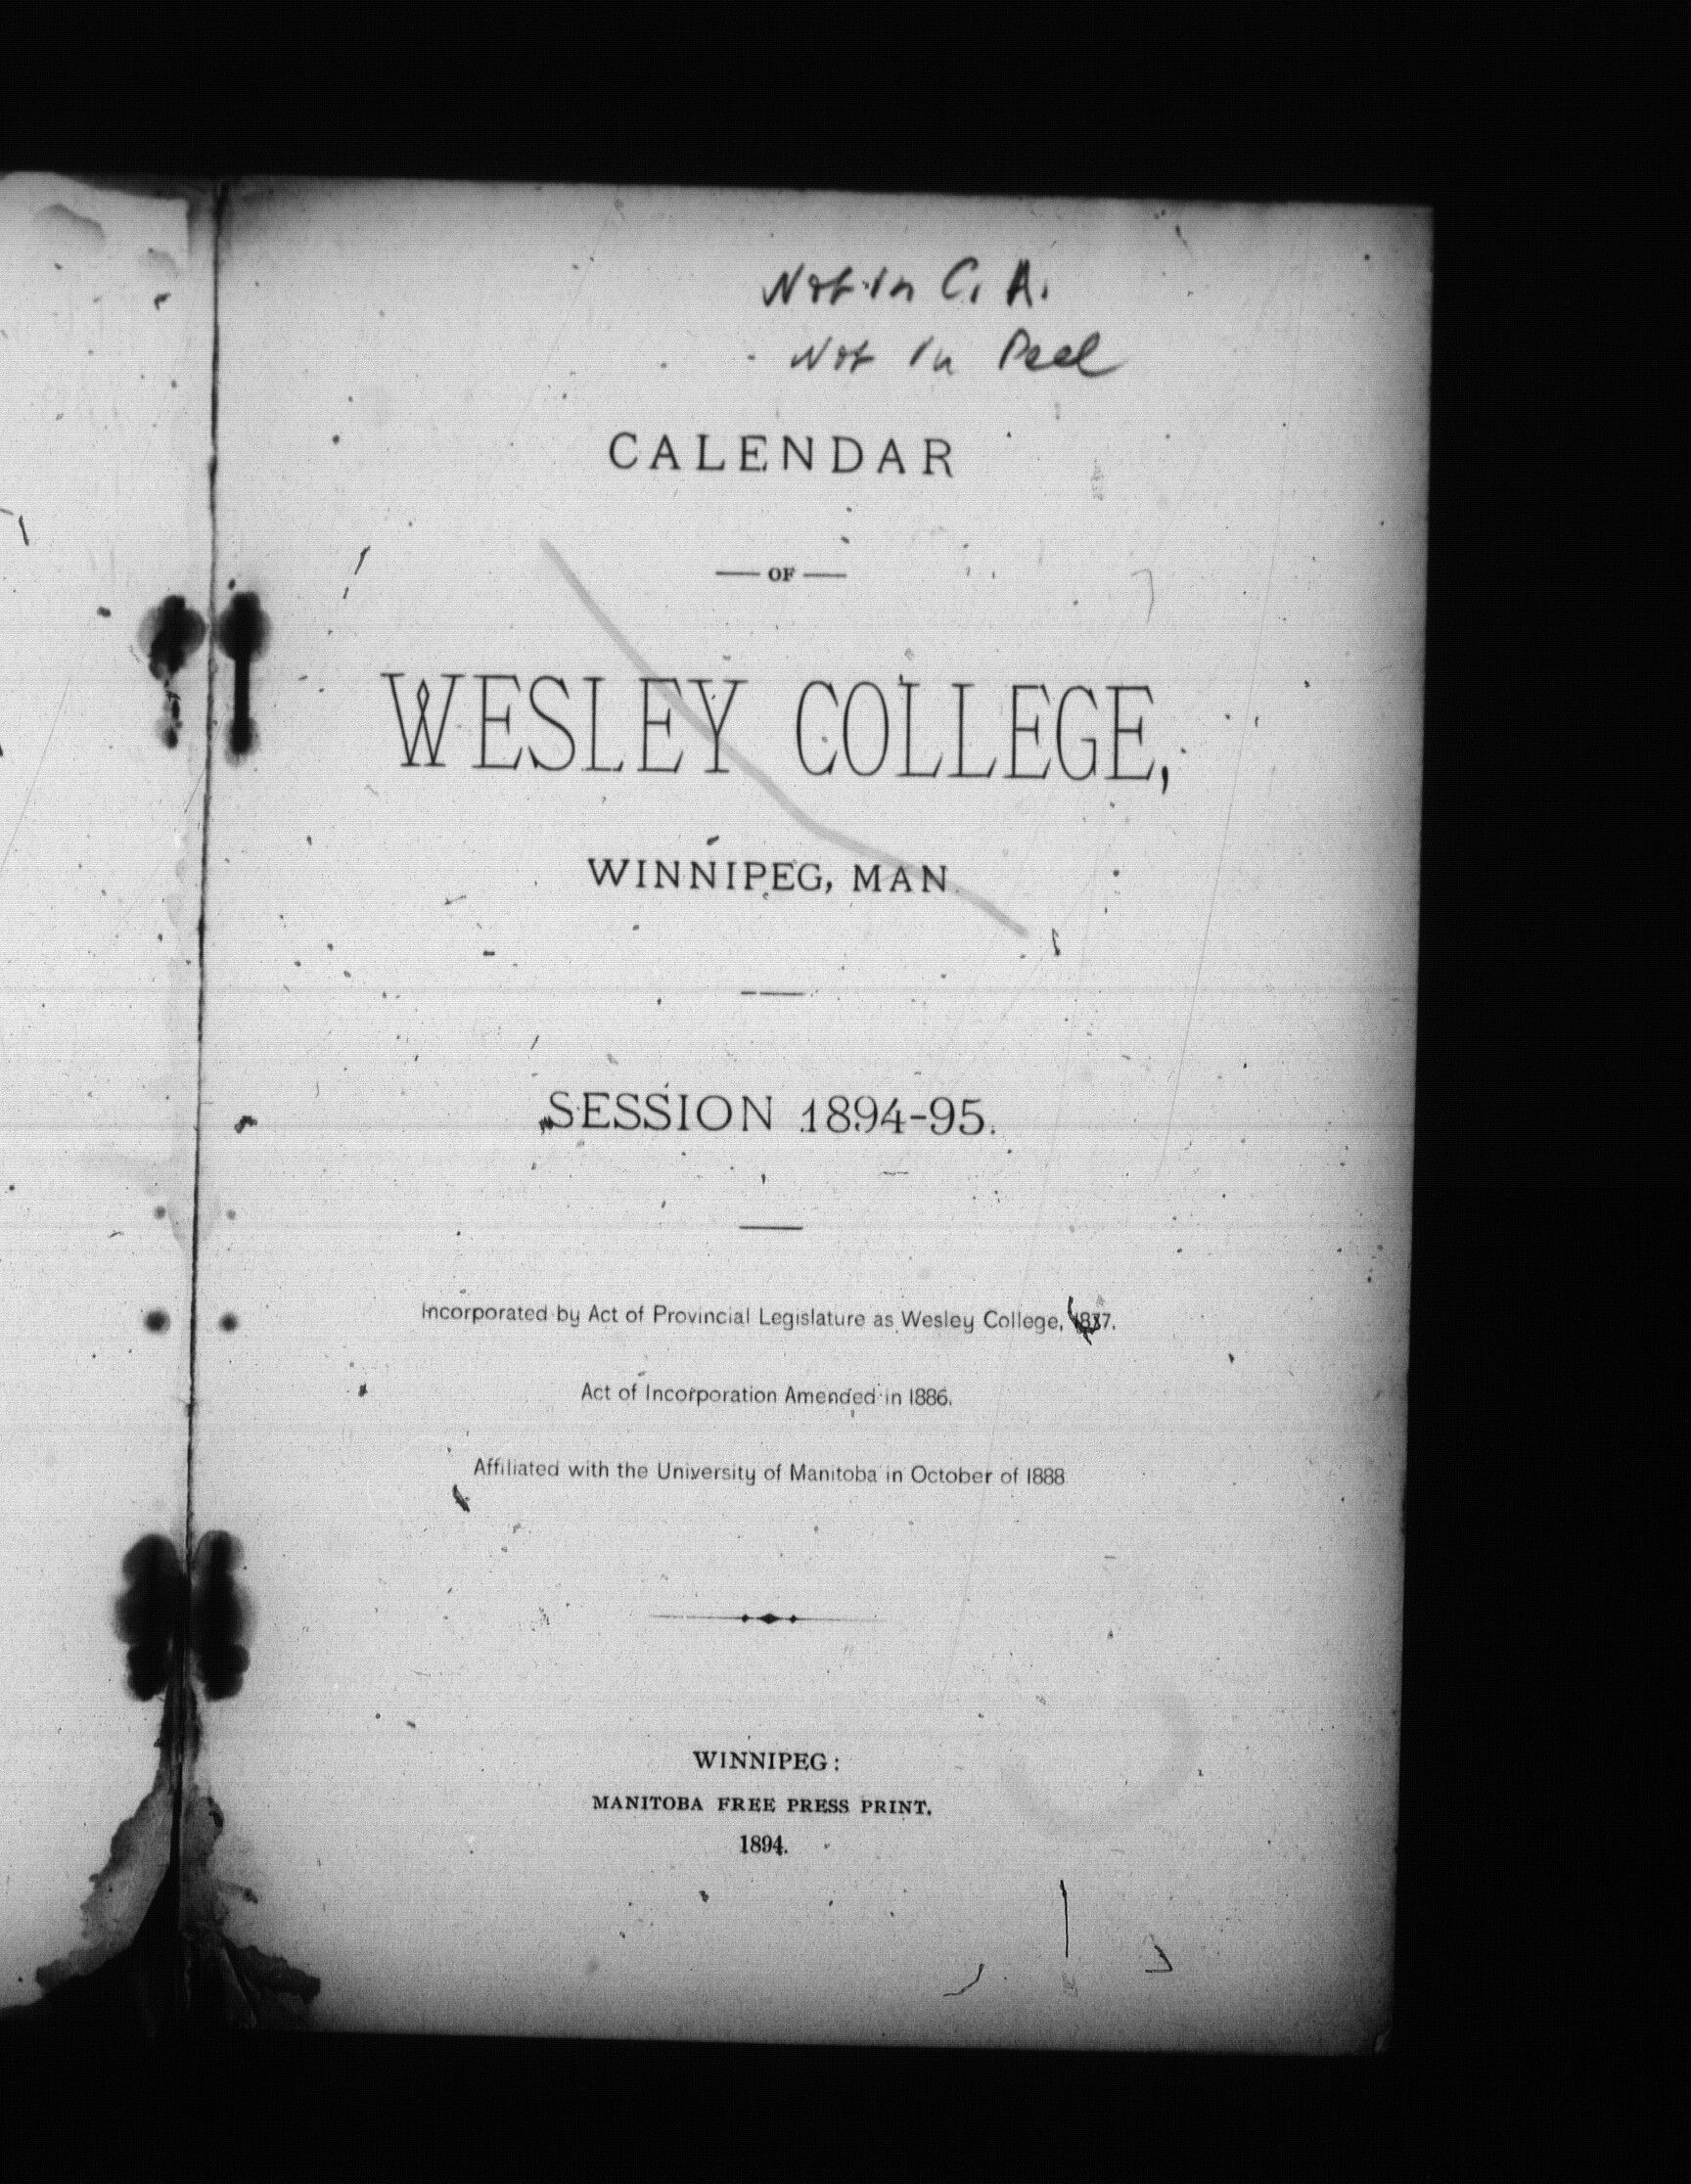 Not in C. A.
Not in Peel
CALENDAR
OF
WESLEY COLLEGE,
WINNIPEG, MAN
SESSION 1894-95.
Incorporated by Act of Provincial Legislature as Wesley College,
Act of Incorporation Amended in 1886.
Affiliated with the University of Manitoba in October of 1888
WINNIPEG:
MANITOBA FREE PRESS PRINT.
1894.